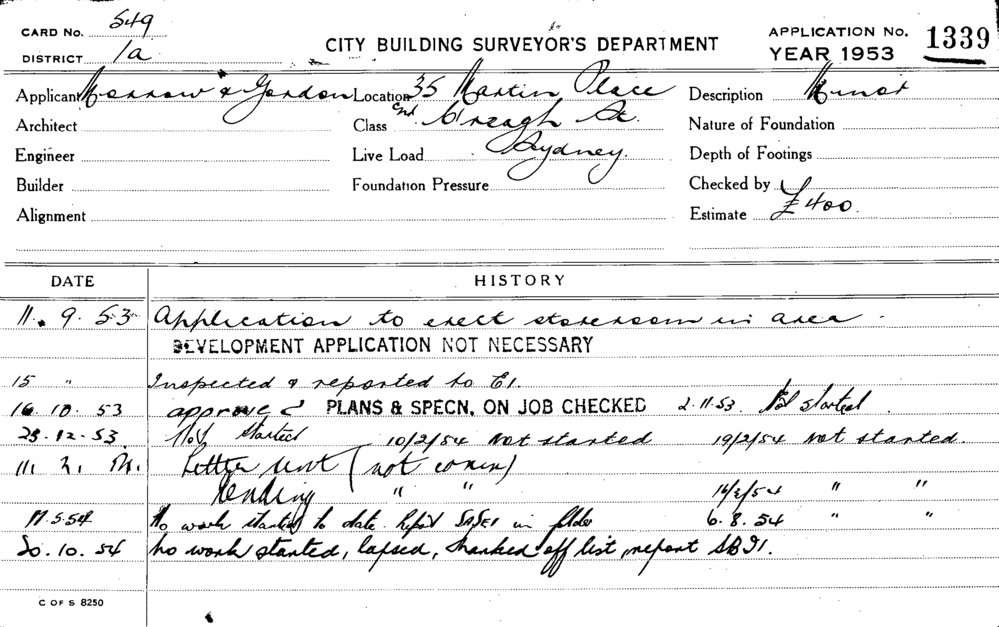 CARD No. 549
DISTRICT 1a
CITY BUILDING SURVEYOR'S DEPARTMENT
APPLICATION No. 1339
YEAR 1953
Applicant Morrow & Gordon Location 35 Martin Place Description Minor
Architect Class Cnr Creagh St. Nature of Foundation
Engineer Live Load Sydney. Depth of Footings
Builder Foundation Pressure Checked by
Alignment Estimate £400.
DATE HISTORY
11. 9. 53 Application to erect storeroom in area.
DEVELOPMENT APPLICATION NOT NECESSARY
15 " Inspected & reported to
16. 10. 53 approved PLANS & SPECN, ON JOB CHECKED 2.11.53 Not started
23.12.53. Not started 10/2/54 not started 19/2/54 not started.
Letter sent (not comm)
Pending " " " "
No work started to date. Report in 6.8.54 " "
20.10.54 No work started, lapsed, marked off list, report
C OF S 8250